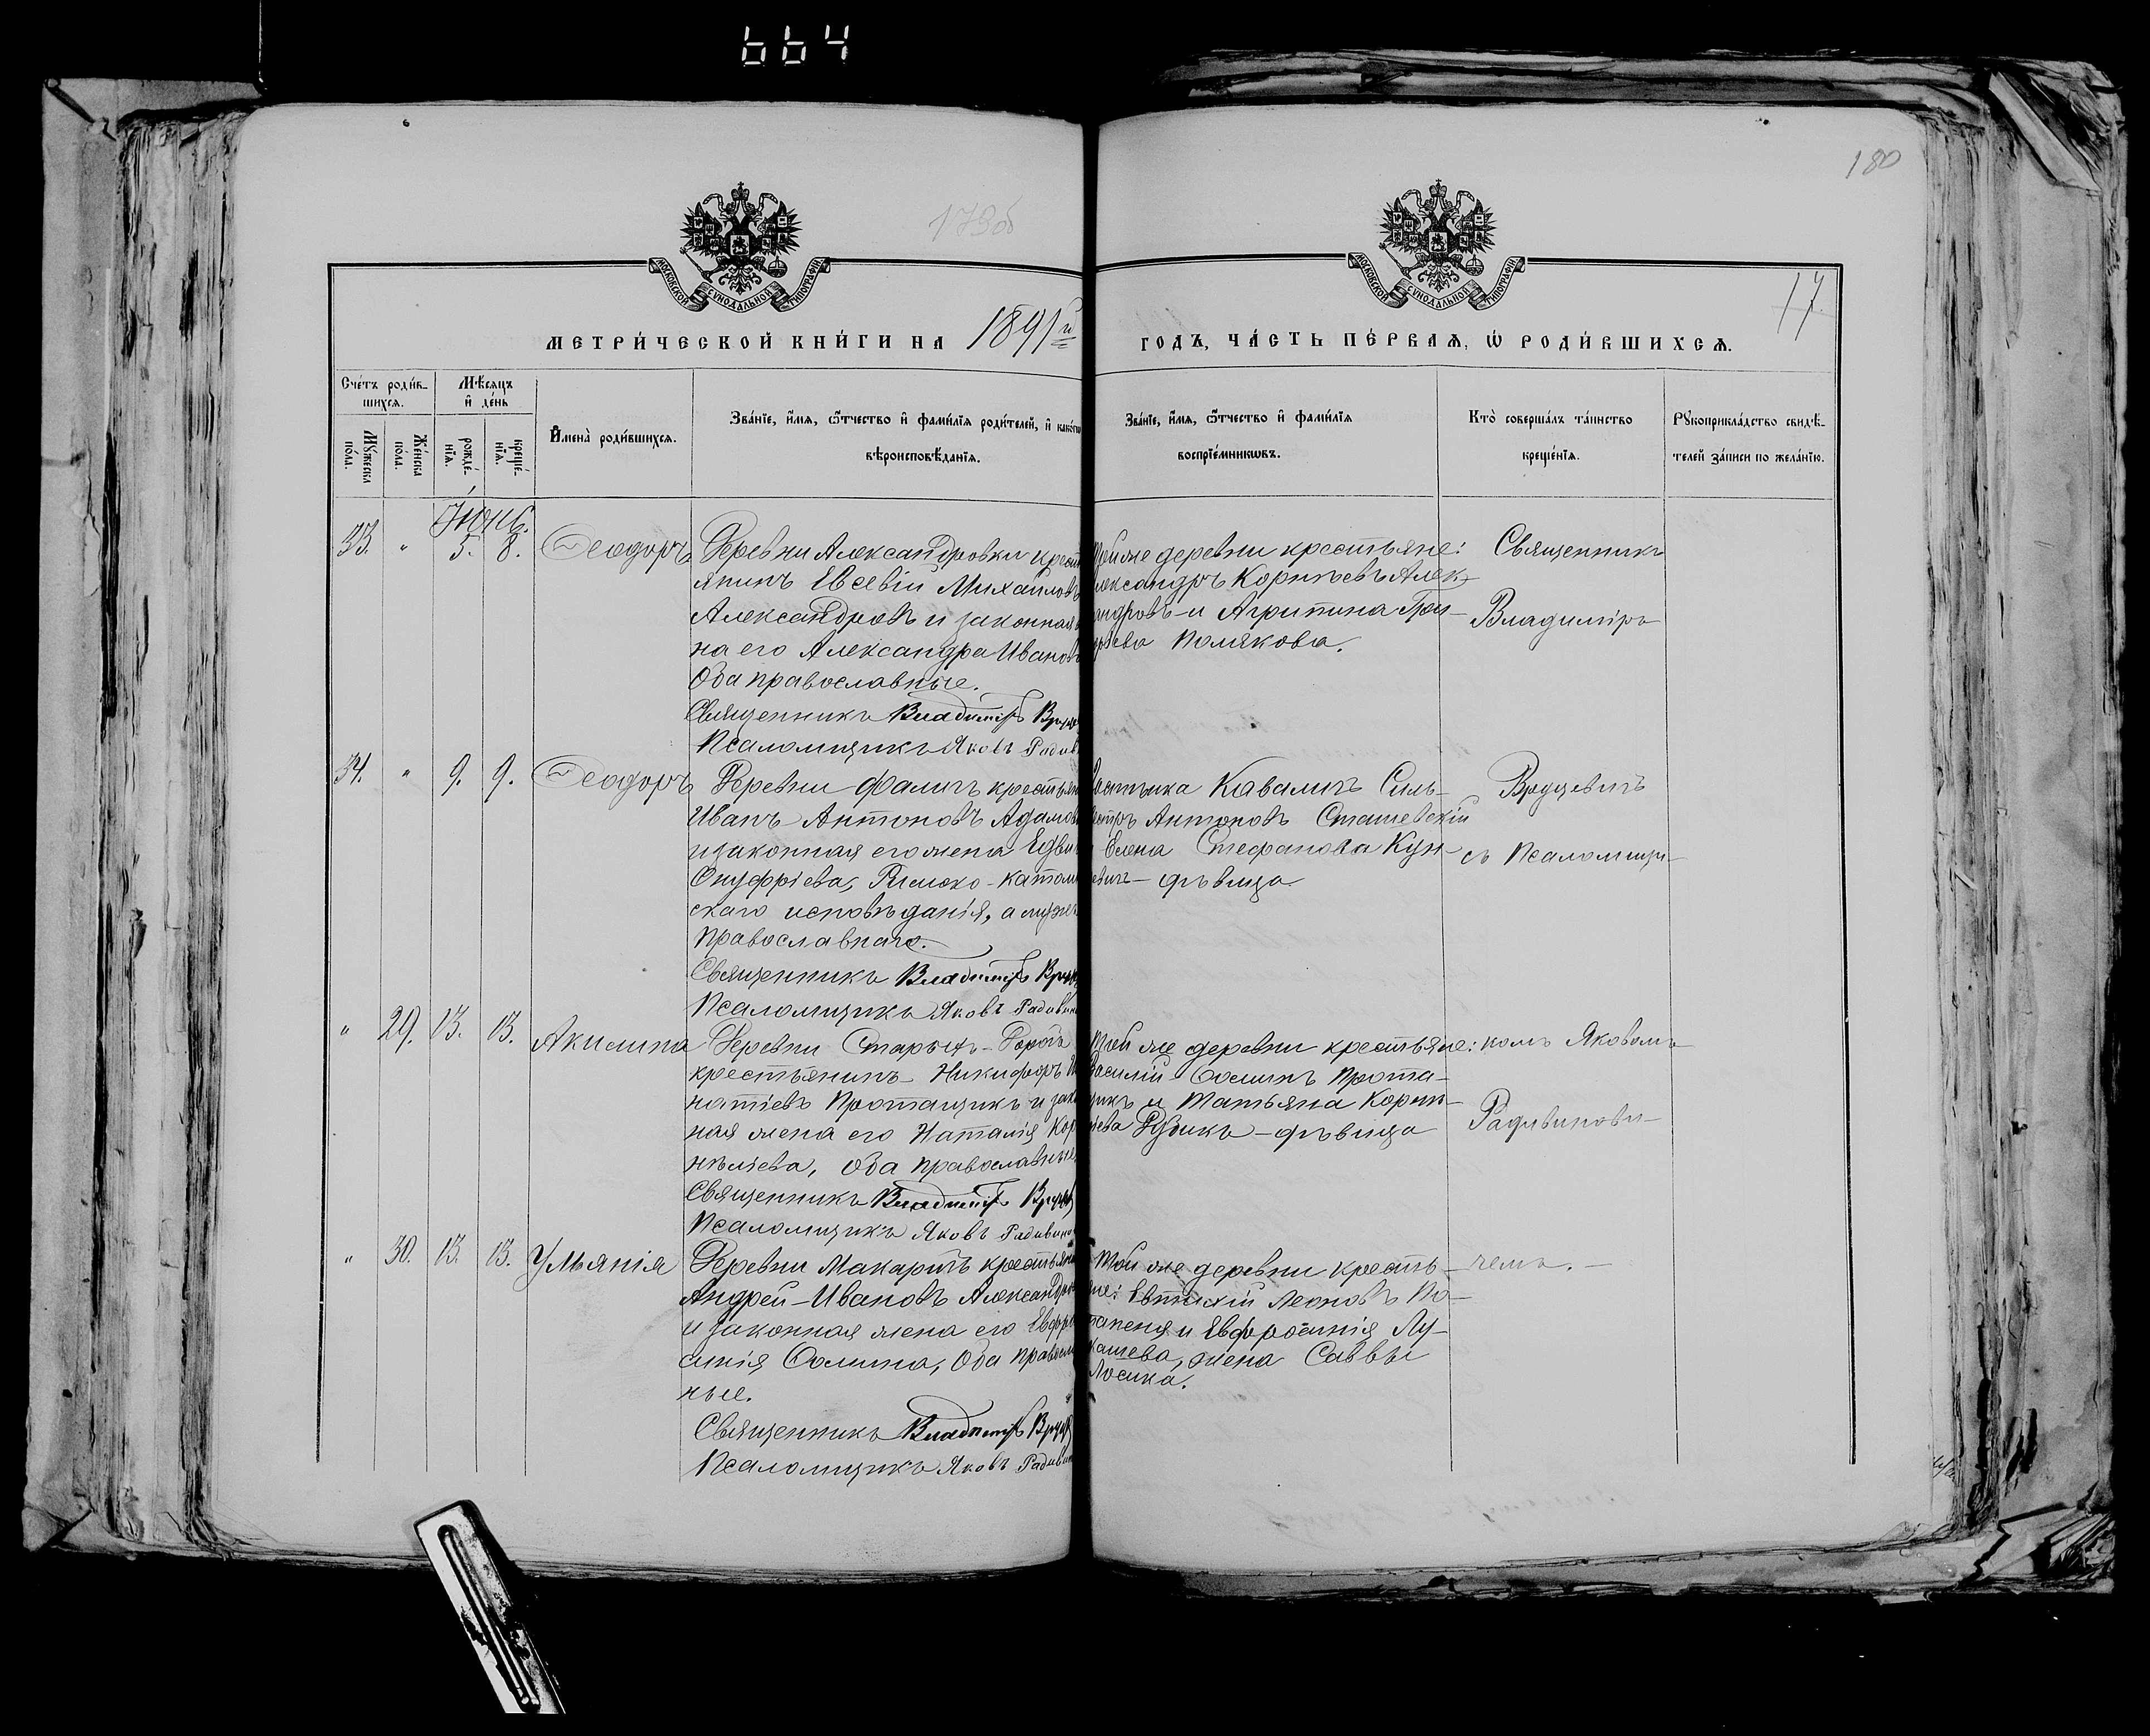 664
180
173об
МОСКОВСКОЙ СѴНОДАЛЬНОЙ ТИПОГРАФІИ
МОСКОВСКОЙ СѴНОДАЛЬНОЙ ТИПОГРАФІИ
17
МЕТРИ́ЧЕСКОЙ КНИ́ГИ НА 1891й ГОДЪ, ЧА́СТЬ ПЕ́РВАѦ, Ѡ҆ РОДИ́ВШИХСѦ.
Сче́тъ роди́в-
шихсѧ.
Мꙋжеска по́ла.
Же́нска по́ла.
Мѣ́сѧцъ и҆ де́нь
рожде́-
нїѧ.
креще́-
нїѧ.
И҆мена̀ роди́вшихсѧ.
Зва́нїе, и҆́мѧ, ѻ҆́тчество и҆ фами́лїѧ роди́телей, и҆ како́гѡ
вѣроисповѣ́данїѧ.
Зва́нїе, и҆́мѧ, ѻ҆́тчество и҆ фами́лїѧ
воспрїе́мникѡвъ.
Кто̀ соверша́лъ та́инство
креще́нїѧ.
Рꙋкоприкла́дство свидѣ́-
телей за́писи по жела́нїю.
Іюнь.
33. " 5. 8. Ѳеодоръ Деревни Александровки крест
янинъ Евсевій Михаиловъ
Александровъ и законная
на его Александра Иванов
Оба православные.
Священникъ Владиміръ
Псаломщикъ Яковъ Радив
Той же деревни крестьяне:
лександръ Корнѣевъ Алек-
андровъ и Агрипина Гри-
рьева Полякова.
Священникъ
Владиміръ
34. " 9. 9. Ѳеодоръ Деревни Фаличъ крестьян
Иванъ Антоновъ Адамов
и законная его жена
Онуфріева, Римско-катол
скаго исповѣданія, а муж
православнаго.
Священникъ Владиміръ
Псаломщикъ Яковъ Радивин
Каваличъ Силь-
Антоновъ Сташевскій
Елена Стефанова Кун-
евичъ - дѣвица.
Вруцевичъ
съ Псаломщи-
" 29. 13. 13. Акилина Деревни Старыхъ-Дорогъ
крестьянинъ Никифоръ
натіевъ Протащикъ и зак
ная жена его Наталія Кор
нѣліева, оба православные
Священникъ Владиміръ
Псаломщикъ Яковъ Радивино
Той же деревни крестьяне:
Василій Осиповъ Прота-
щикъ и Татьяна Корни-
ліева - дѣвица
комъ Яковомъ
Радивинови-
" 30. 13. 13. Ульянія Деревни Макаричъ крестьян
Андрей Ивановъ Александро
и законная жена его Евфро
синія Осипова, Оба правосла
ные.
Священникъ Владиміръ
Псаломщикъ Яковъ Радивин
Той же деревни кресть-
яне: Евтихій Леоновъ По-
тапеня и Евфросинія Лу-
кашева, жена Саввы
Лосика.
чемъ. -